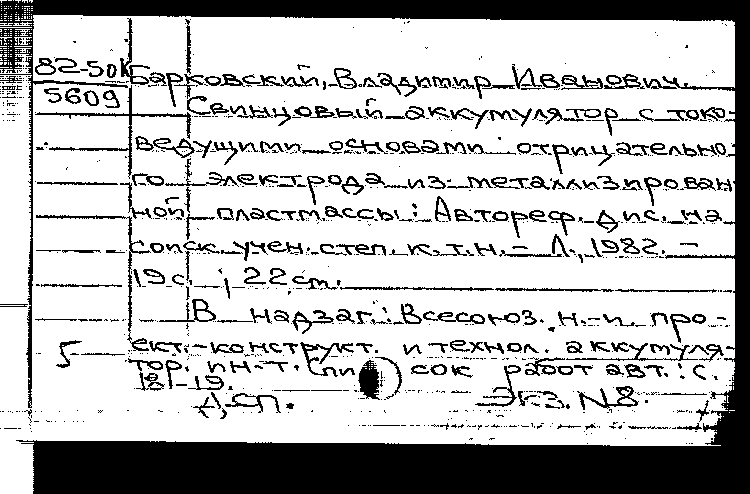 82-50к Барковский, Владимир Иванович.
5609 Свинцовый аккумулятор с токо-
ведущими основами отрицательно-
го электрода из металлизирован-
ной пластмассы: Автореф. дис. на
соиск. учен. степ. к.т.н. - Л., 1982. -
19 с. ; 22 см.
В надзаг.: Всесоюз. н.-и. про-
5 ект.-конструкт. и технол. аккумуля-
тор. ин-т. Список работ авт.: с.
18-19.
Д, СП. Экз. N8.